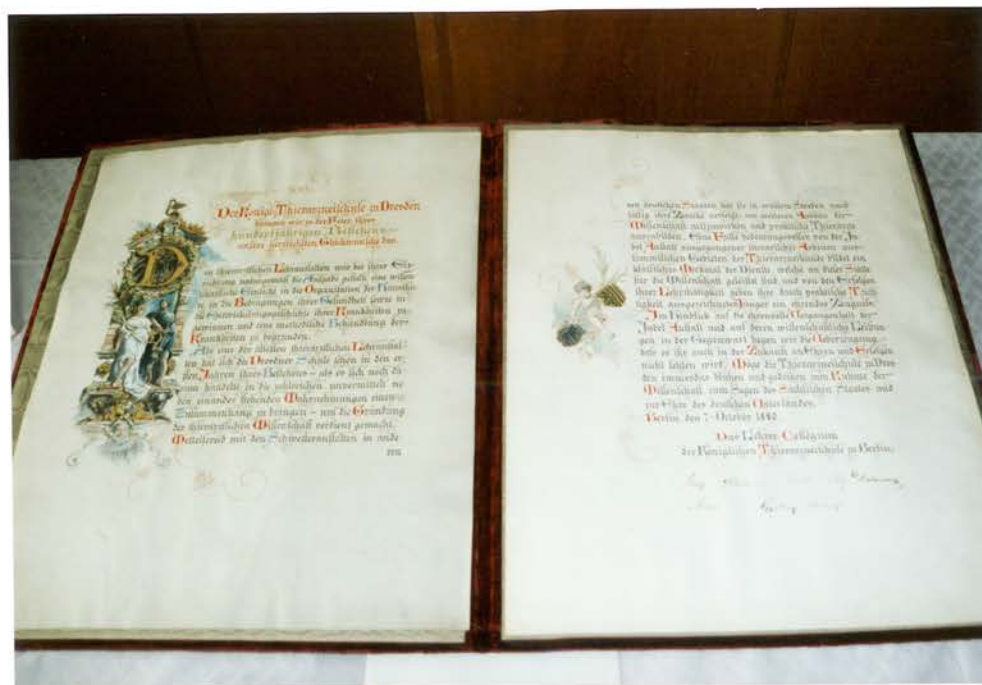 Der Königl. Thierarzneischule in Dresden
bringen wir zu der Feier ihres
hundertjährigen Bestehens
unsere herzlichsten Glückwünsche dar.
D
en thierärztlichen Lehranstalten war bei ihrer
die Aufgabe gestellt, eine wissen
schaftliche Einsicht in die Organisation der Hausthie
re, in die Bedingungen ihrer Gesundheit sowie in
die Entwickelungsgeschichte ihrer Krankheiten zu
gewinnen und eine methodische Behandlung der
Krankheiten zu begründen.
Als eine der ältesten thierärztlichen Lehranstal
ten hat sich die Dresdner Schule schon in den er
sten Jahren ihres Bestehens – als es sich noch da
rum handelte in die zahlreichen unvermittelt ne
ben einander stehenden Wahrnehmungen einen
Zusammenhang zu bringen – um die Gründung
der thierärztlichen Wissenschaft verdient gemacht.
Wetteifernd mit den Schwesteranstalten in ande
ren
ren deutschen Staaten hat sie in
ihre Zwecke verfolgt: am weiteren Ausbau der
Wissenschaft mitzuwirken und praktische Thierärzte
auszubilden. Eine Fülle hervorragender von der Ju
bel Anstalt ausgegangener literarischer Arbeiten aus
sämmtlichen Gebieten der Thierarzneikunde bildet ein
Merkmal der Dienste, welche an dieser Stätte
für die Wissenschaft geleistet sind und von den Erfolgen
ihrer Lehrthätigkeit geben ihre durch praktische Tüch
tigkeit ausgezeichneten Jünger ein ehrendes Zeugniss.
Im Hinblick auf die ehrenvolle Vergangenheit der
Jubel Anstalt und auf deren wissenschaftliche Leistun
gen in der Gegenwart hegen wir die Ueberzeugung
dass es ihr auch in der Zukunft an Ehren und Erfolgen
nicht fehlen wird. Möge die Thierarzneischule zu Dres
den immerdar blühen und gedeihen zum Ruhme der
Wissenschaft, zum Segen des Sächsischen Staates und
zur Ehre des deutschen Vaterlandes.
Berlin, den 7. October 1880
Das Lehrer-Collegium
der Königlichen Thierarzneischule zu Berlin.